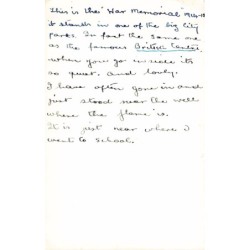 This is the "War Memorial" 1914-18
it stands in one of the big city
parks. In fact the same one
as the famous British
when you go inside its
so quiet. and lovely.
I have often gone in and
just stood near the well
where the flame is.
It is just near where I
went to school.